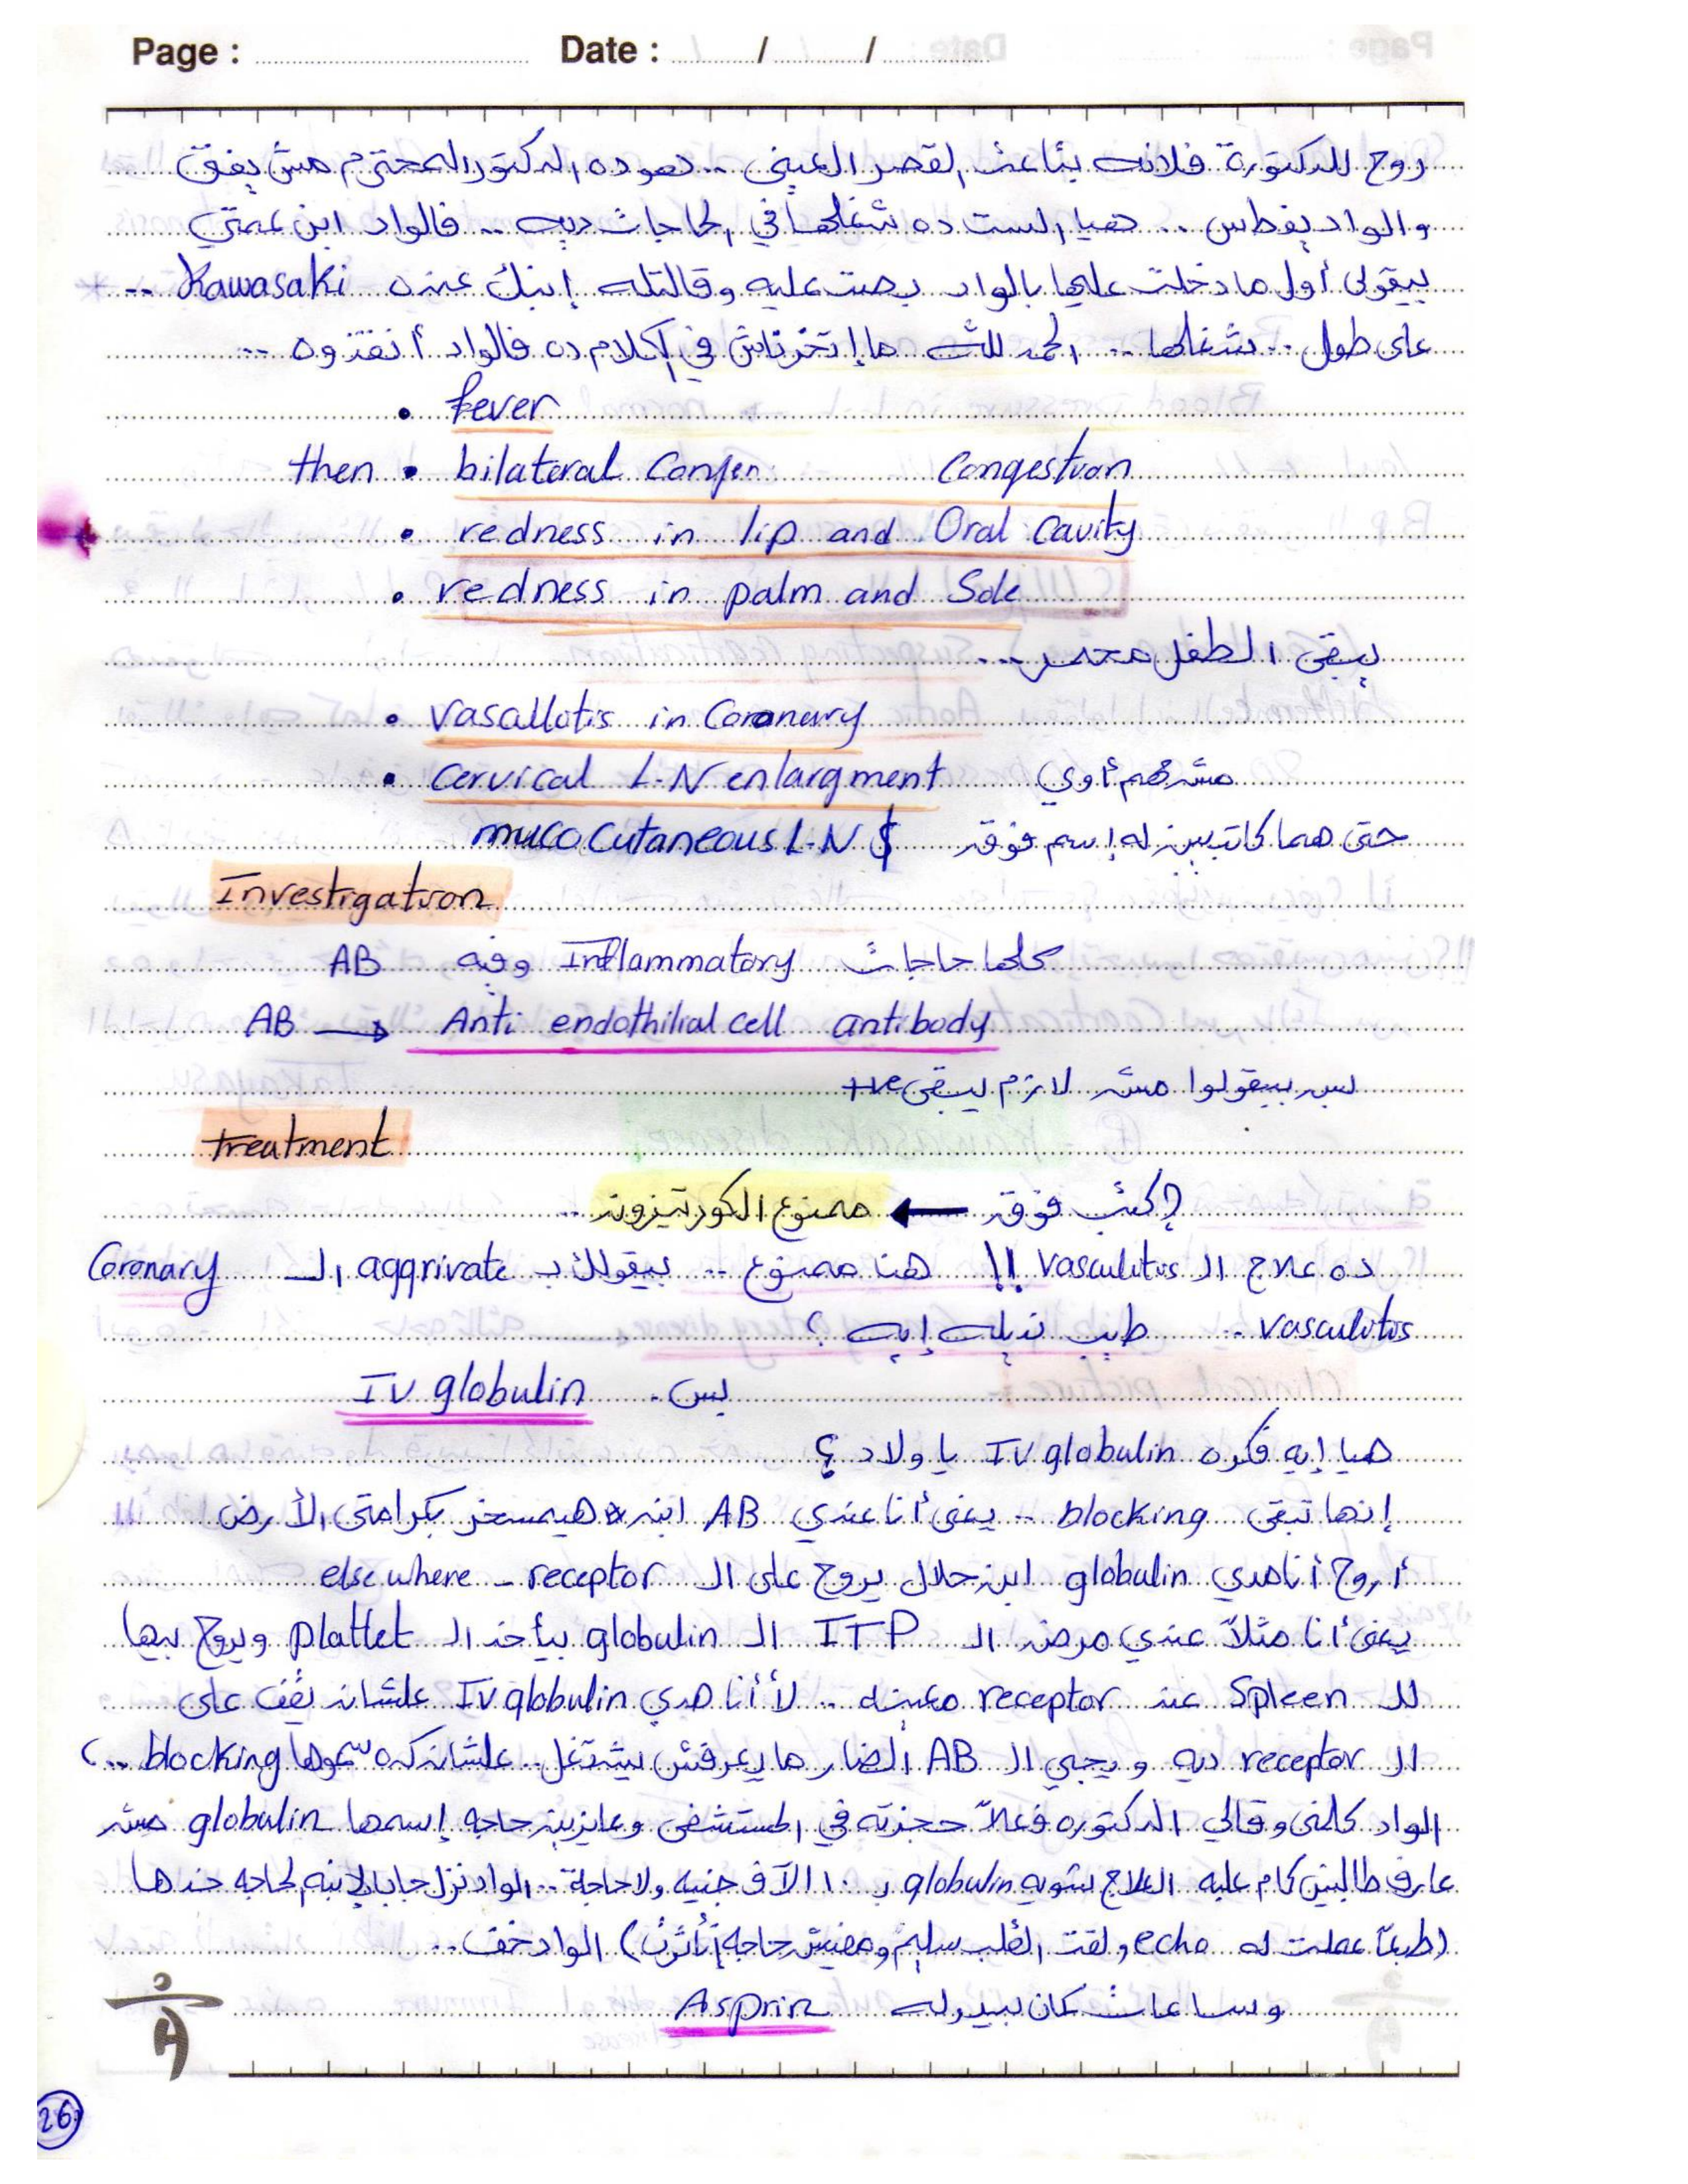 Page : Date : / /
روح للدكتورة فلانه بتاعت القصر العيني .. هو ده الدكتور المحترم مش يفتي
والواد يفطس .. هيا الست ده شغلها في الحاجات ديه .. فالواد ابن عمتي
بيقولي أول ما دخلت عليها بالواد بصت عليه وقالتله إبنك عنده Kawasaki ..
على طول .. شغلها .. الحمد لله ما إتخرناش في الكلام ده فالواد أنقذوه ..
• fever
then • bilateral Conjen Congestion
• redness in lip and Oral Cavity
• redness in palm and Sole
يبقى الطفل محمر ...
• vasallotis in Coronary
• Cervical L.N enlargment مش مهم أوي
حتى هما كاتبين له إسم فوق muco Cutaneous L.N $
Investigation
كلها حاجات Inflammatory وفيه AB
AB → Anti endothilial cell antibody
بس بيقولوا مش لازم يبقى +ve
treatment
إكتب فوق ← ممنوع الكورتيزون ..
ده علاج الـ Vasculitus !! هنا ممنوع .. بيقولك بـ aggrivate الـ Coronary
vasculitis .. طيب نديله إيه ؟
بس . IV globulin
هيا إيه فكره IV globulin يا ولاد ؟
إنها تبقى blocking .. يعني أنا عندي AB ابن * هيمسخر بكرامتي الأرض
أروح أنا مدي globulin ابن حلال يروح على الـ receptor – else where
يعني أنا مثلاً عندي مرض الـ ITP الـ globulin بيأخد الـ plattet ويروح بيها
للـ Spleen عند receptor معينه .. لأ أنا مدي IV globulin علشان تقف على
الـ receptor ديه ويجي الـ AB الضار ما يعرفش يشتغل .. علشان كده سموها blocking ..
الواد كلمني وقالي الدكتوره فعلاً حجزته في المستشفى وعايزين حاجه إسمها globulin مش
عارف طالبين كام عليه العلاج بشوية globulin بـ ١٠ الآف جنيه ولا حاجة .. الواد نزل جابها لإبنه الحاجه خدها
(طبعاً عملت له echo ولقت القلب سليم ومفيش حاجه إتأثرت) الواد خف ..
وساعات كان بيدوله Asprin
26